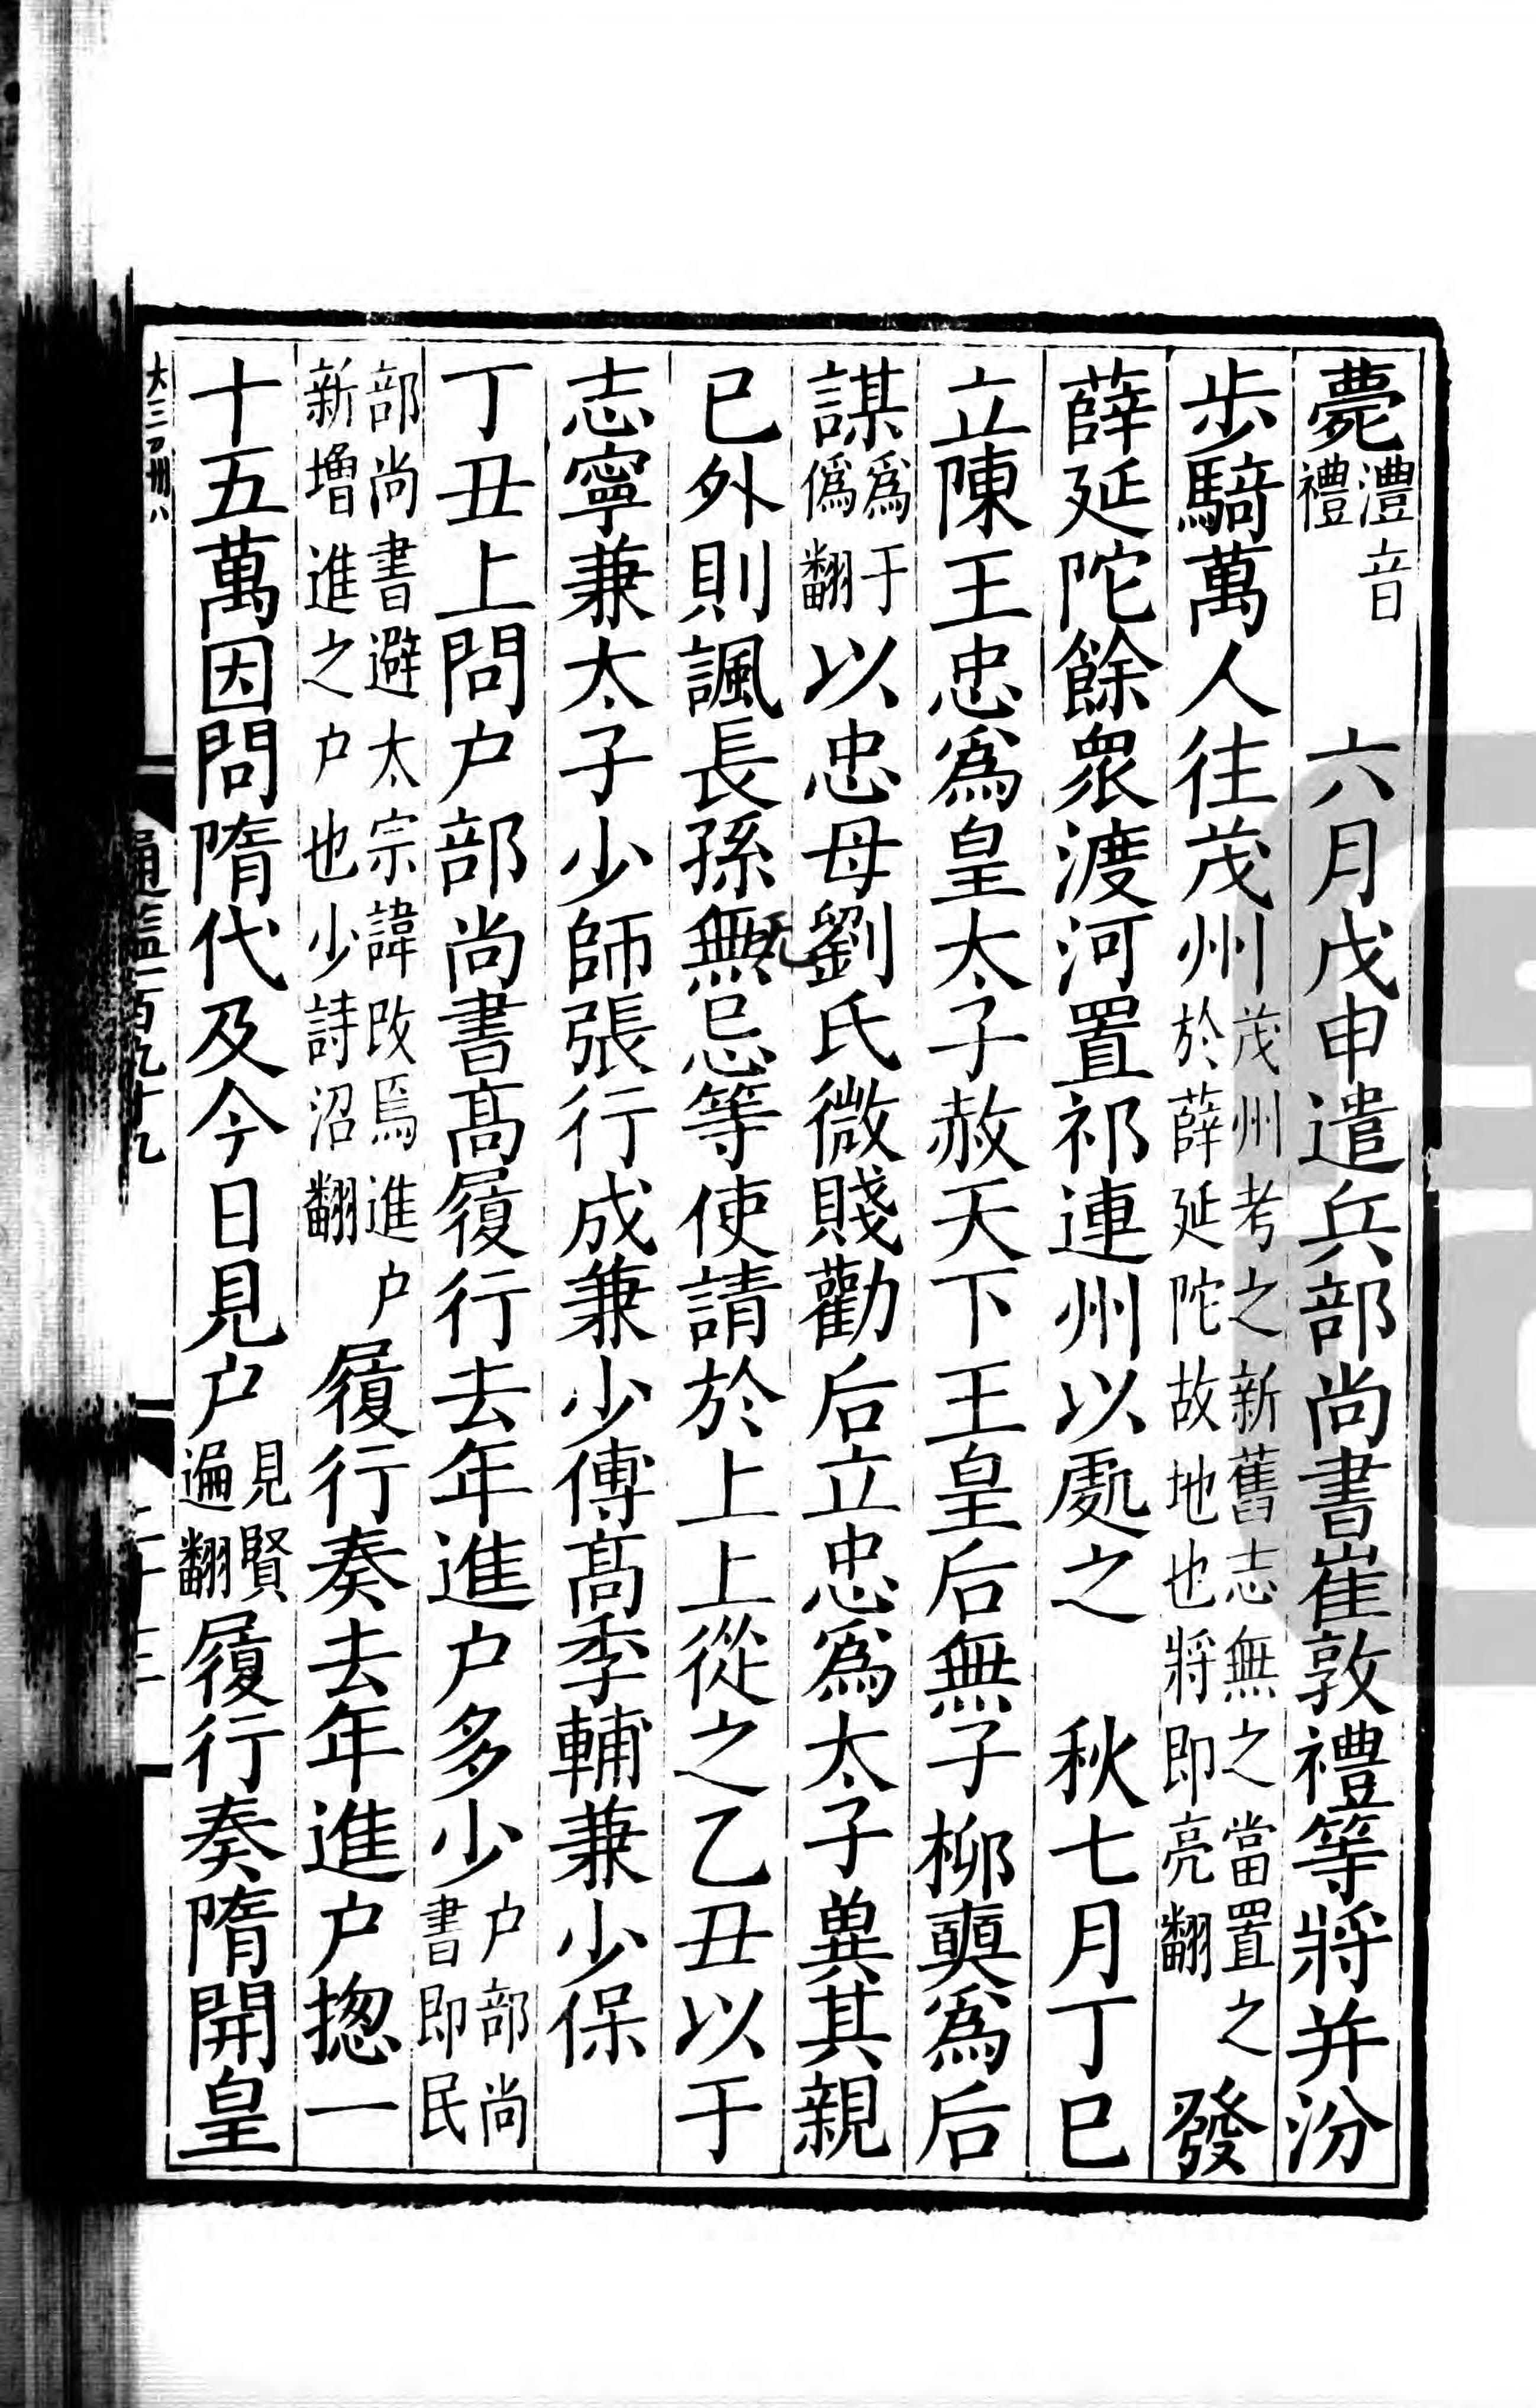 薨澧音禮　六月戊申遣兵部尚書崔敦禮等將并汾
步騎萬人往茂州茂州考之新舊志無之當置之於薛延陀故地也將即亮翻發
薛延陀餘衆渡河置祁連州以處之　秋七月丁巳
立陳王忠爲皇太子赦天下王皇后無子柳奭爲后
謀爲于僞翻以忠母劉氏微賤勸后立忠爲太子兾其親
已外則諷長孫無忌等使請於上上從之乙丑以于
志寧兼太子少師張行成兼少傅高季輔兼少保
丁丑上問户部尚書高履行去年進户多少户部尚書即民
部尚書避太宗諱改焉進户新增進之户也少詩沼翻履行奏去年進户揔一
十五萬因問隋代及今日見户見賢遍翻履行奏隋開皇
通鑑一百九十九